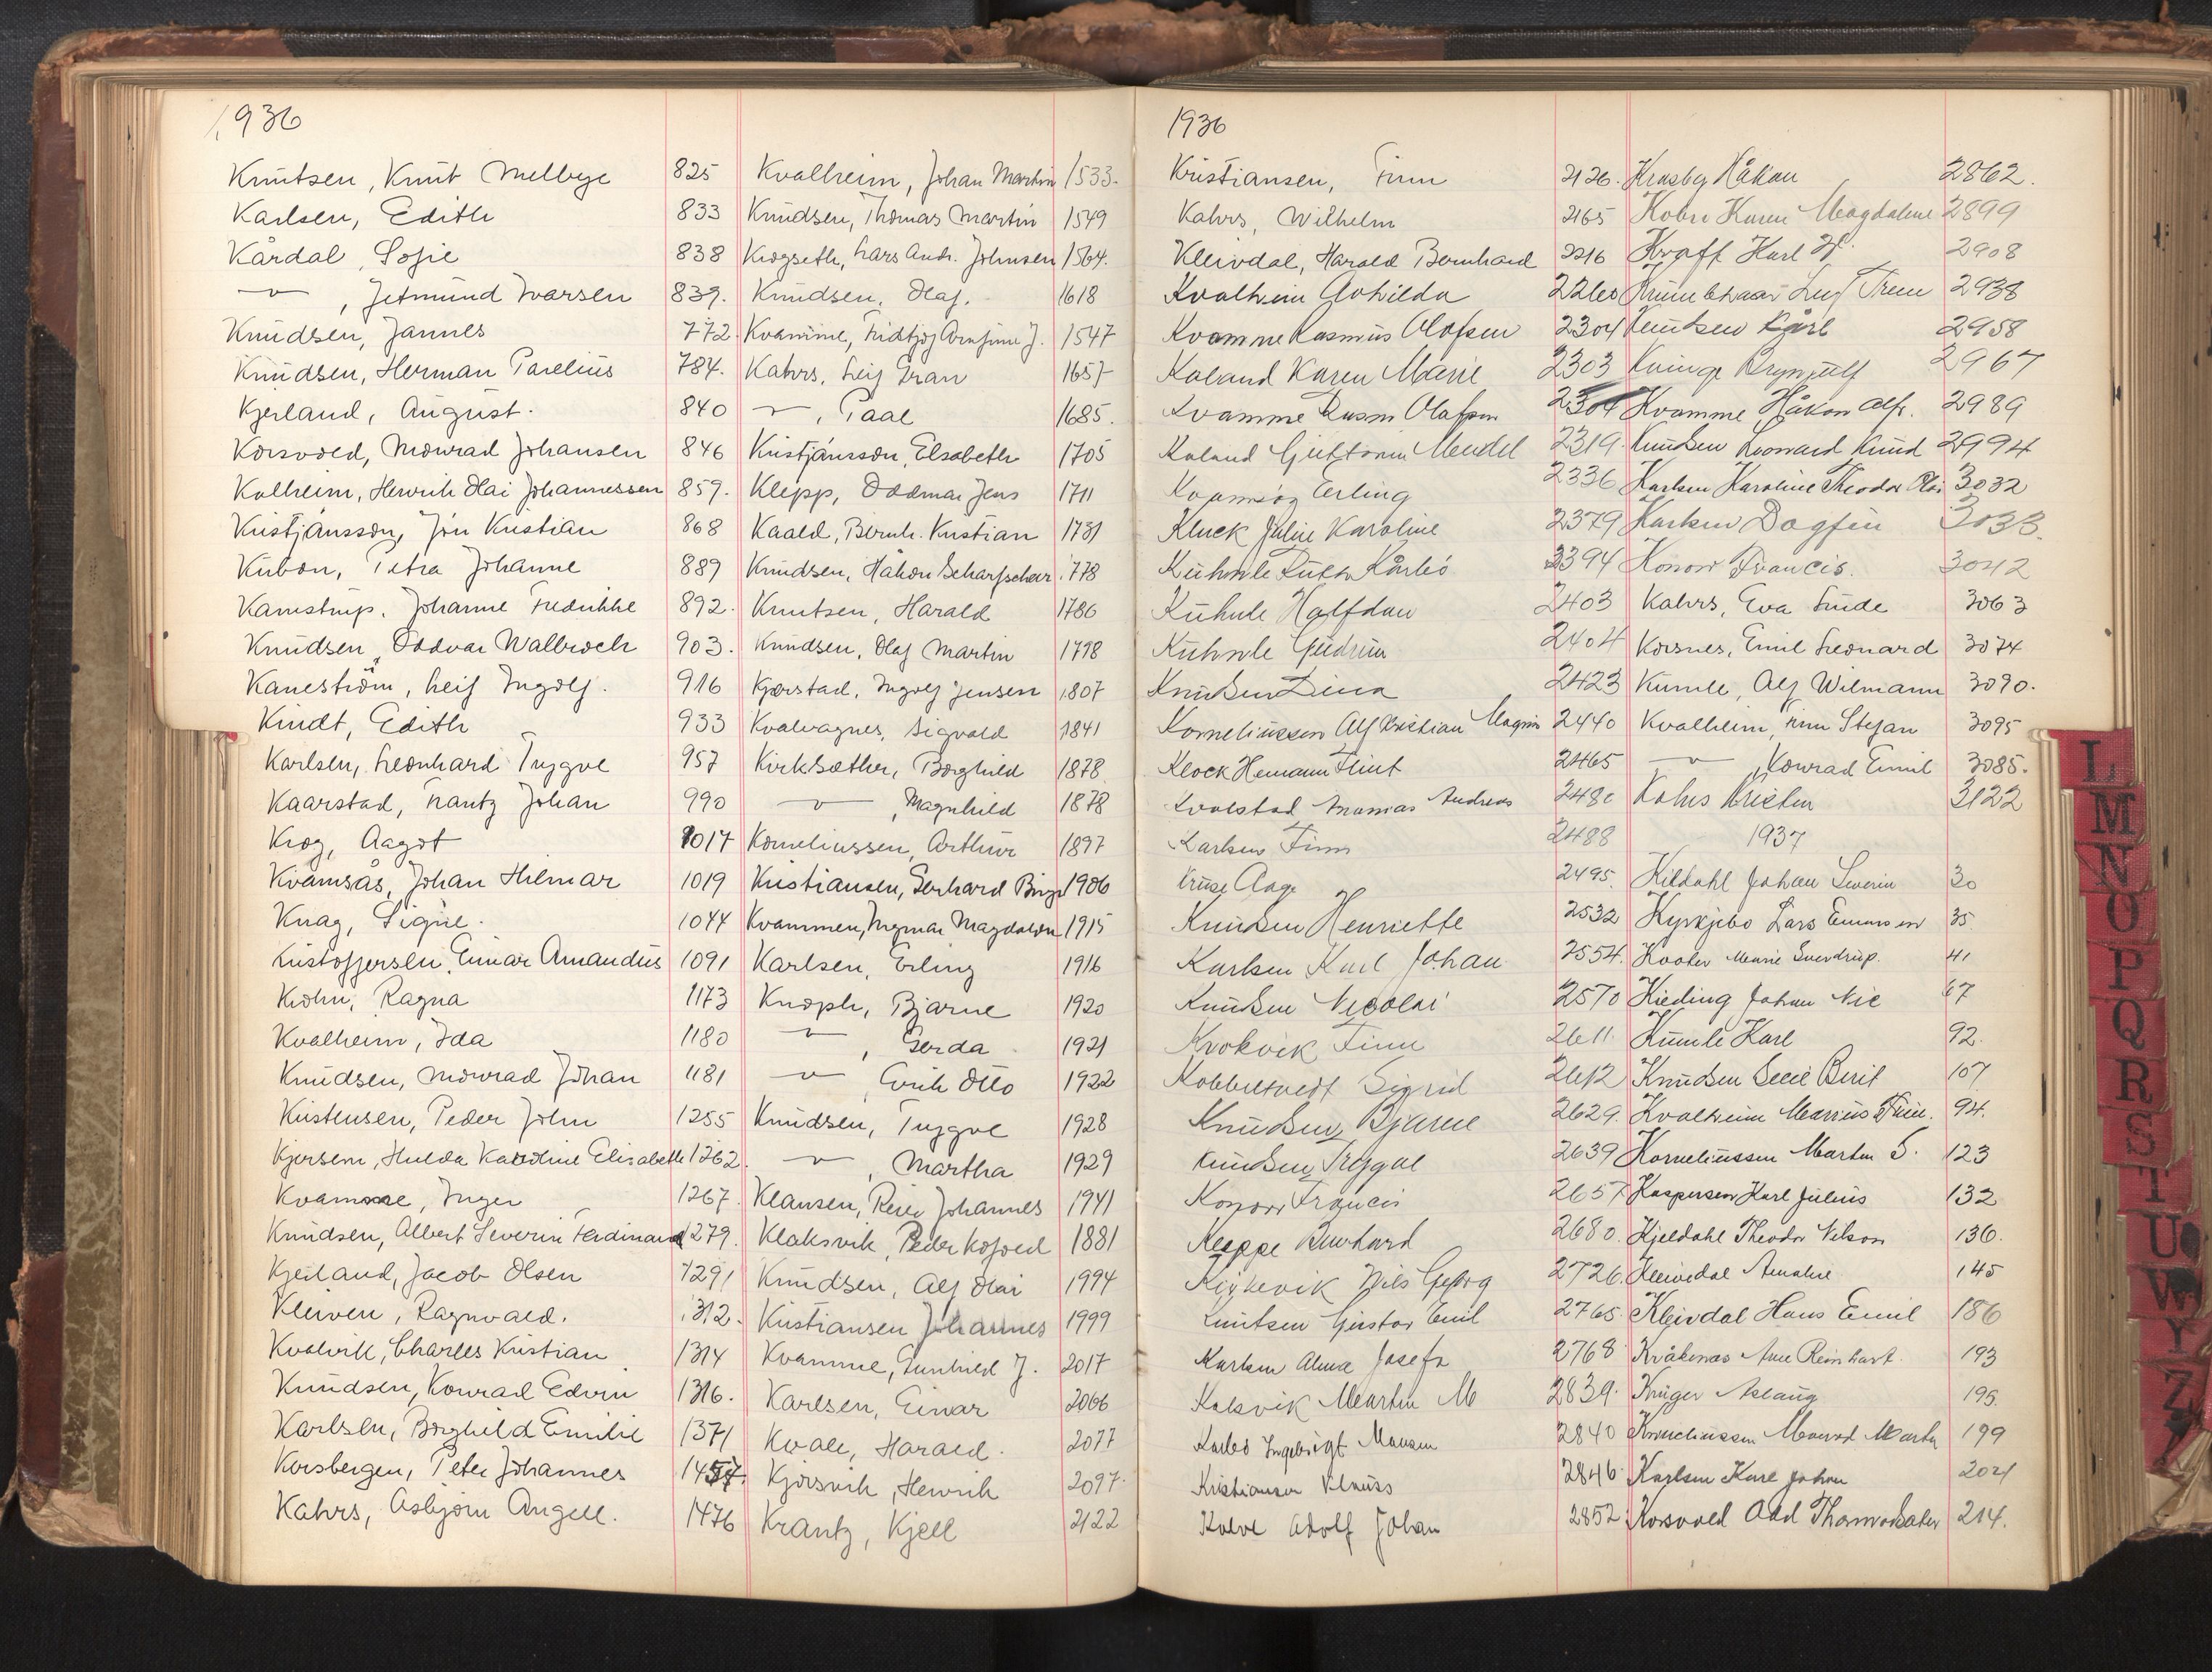 1936
Knutsen, Knut Mellbye 825
Karlsen, Edith 833
Kårdal, Sofie 838
—〃—, Jetmund Ivarsen 839.
Knudsen, Jannes 772.
Knudsen, Herman Parelius 784.
Kjerland, August. 840
Korsvold, Monrad Johansen 846
Kolheim, Henrik Olai Johannessen 859.
Kristjánsson, Jón Kristian 868
Kubon, Petra Johanne 889
Kamstrup. Johanne Fredrikke 892.
Knudsen, Oddvar Wallroch 903.
Kaneström, Leif Ingolf. 916
Kindt, Edith 933
Karlsen, Leonhard Tryggve 957
Kaarstad, Frantz Johan 990
Krog, Aagot 1017
Kvamsås, Johan Hilmar 1019
Knag, Signe. 1044
Kristoffersen, Einar Amandus 1091
Krohn, Ragna 1173
Kvalheim, Ida 1180
Knudsen, Monrad Johan 1181
Kristensen, Peder John 1255
Kjersem, Hulda Karoline Elisabeth 1262.
Kvamme, Inger 1267.
Knudsen, Albert Severin Ferdinand 1279.
Kjeiland, Jacob Olsen 1291
Kleiven, Ragnvald. 1312.
Kvalvik, Charles Kristian 1314
Knudsen, Konrad Edvin 1316.
Karlsen, Borghild Emilie 1371
Korsbergen, Peter Johannes 1457.
Kahrs, Asbjørn Angell. 1476
Kvalheim, Johan Martin 1533.
Knudsen, Thomas Martin 1549
Krogseth, Lars Andr. Johnsen 1564.
Knudsen, Olaf. 1618
Kvamme, Fridtjof Arnfinn J. 1547
Kahrs, Leif Gran 1657
—〃—, Paal 1685.
Kristjánsson, Elsabeth 1705
Klepp, Oddmar Jens 1711
Kaald, Bernh. Kristian 1731
Knudsen, Håkon Scharfscher 1778
Knutsen, Harald 1786
Knudsen, Olaf Martin 1798
Kjørstad, Ingolf Jensen 1807
Kvalvagnes, Sigvald 1841
Kirksæther, Borghild 1878
—〃—, Magnhild 1878
Korneliussen, Arthur 1897
Kristiansen, Gerhard Birger 1906
Kvammen, Ingmar Magdalon 1915
Karlsen, Erling 1916
Knoph, Bjarne 1920
—〃—, Gerda 1921
—〃— Erik Otto 1922
Knudsen, Tryggve 1928
—〃—, Martha 1929
Klausen, Peter Johannes 1941
Klaksvik, Peder Kofoed 1881
Knudsen, Alf Olai 1994
Kristiansen Johannes 1999
Kvamme, Gunhild J. 2017
Karlsen, Einar 2066
Kvale, Harald. 2077
Kjørsvik, Henrik 2097.
Krantz, Kjell 2122
1936
Kristiansen, Finn 2126.
Kahrs, Wilhelm 2165
Kleivdal, Harald Bernhard 2216
Kvalheim Gohilda 2260
Kvamme Rasmus Olafsen 2304
Kaland Karen Marie 2303
Kvamme Rasm Olafsen 2304
Kaland Guttorm Mendel 2319.
Kvamsøy Erling 2336
Kluck Julie Karoline 2379
Kuhnle Ruth Kårbø 2394
Kuhnle Halfdan 2403
Kuhnle Gudrun 2404
Knudsen Dina 2423
Korneliussen Alf Kristian Magnus 2440
Klock Hemann Flint 2465
Kvalstad Andreas 2480
Karlsen Finn 2488
Kruse Aage 2495.
Knudsen Henriette 2532
Karlsen Karl Johan 2554.
Knudsen Nicolai 2570
Krokvik Finn 2611.
Kobbeltvedt Sigrid 2612
Knudsen Bjarne 2629.
Knudsen Tryggve 2639
Konow Francis 2657
Kleppe Burhard 2680.
Nils Georg 2726.
Knutsen Gustav Emil 2765.
Karlsen Alma Josefa 2768
Kalsvik Martin M 2839.
Karlbø Ingebrigt Monsen 2840
Kristiansen 2846
Kalve Adolf Johan 2852
Krosby Håkon 2862.
Karen Magdalene 2899
Kraft Karl H. 2908
Leif Trem 2938
Knutsen Kårl 2958
Kvinge Brynjulf 2967
Kvamme Håkon Alfr. 2989
Knudsen Leonard Knud 2994
Karlsen Karoline Theodor Olai 3032
Karlsen Dagfin 3033.
Konow Francis. 3042
Kahrs, Eva Linde 3063
Korsnes, Emil Leonard 3074
Kumle, Alf Wilmann 3090.
Kvalheim, Finn Stefan 3095
—〃—, Konrad Emil 3085.
Kahrs Kristen 3122
1937
Kildahl Johan Severin 30
Kyrkjebø Lars 35.
Marie Sverdrup. 41
Kieding Johan Nic 67
Kumle Karl 92.
Knudsen Berit 107
Kvalheim Marius Finn. 94.
Korneliussen Martin S. 123
Kaspersen Karl Julius 132
Kjeldahl Theodor Nilson 136.
Kleivedal Amalie 145
Kleivdal Hans Emil 186
Kråkenæs Reinhart. 193
Krüger Aslaug 195.
Korneliussen 199
Karlsen Karl Johan 204
Korsvold Odd 214.
L
M
N
O
P
Q
R
S
T
U
W
Y
Z